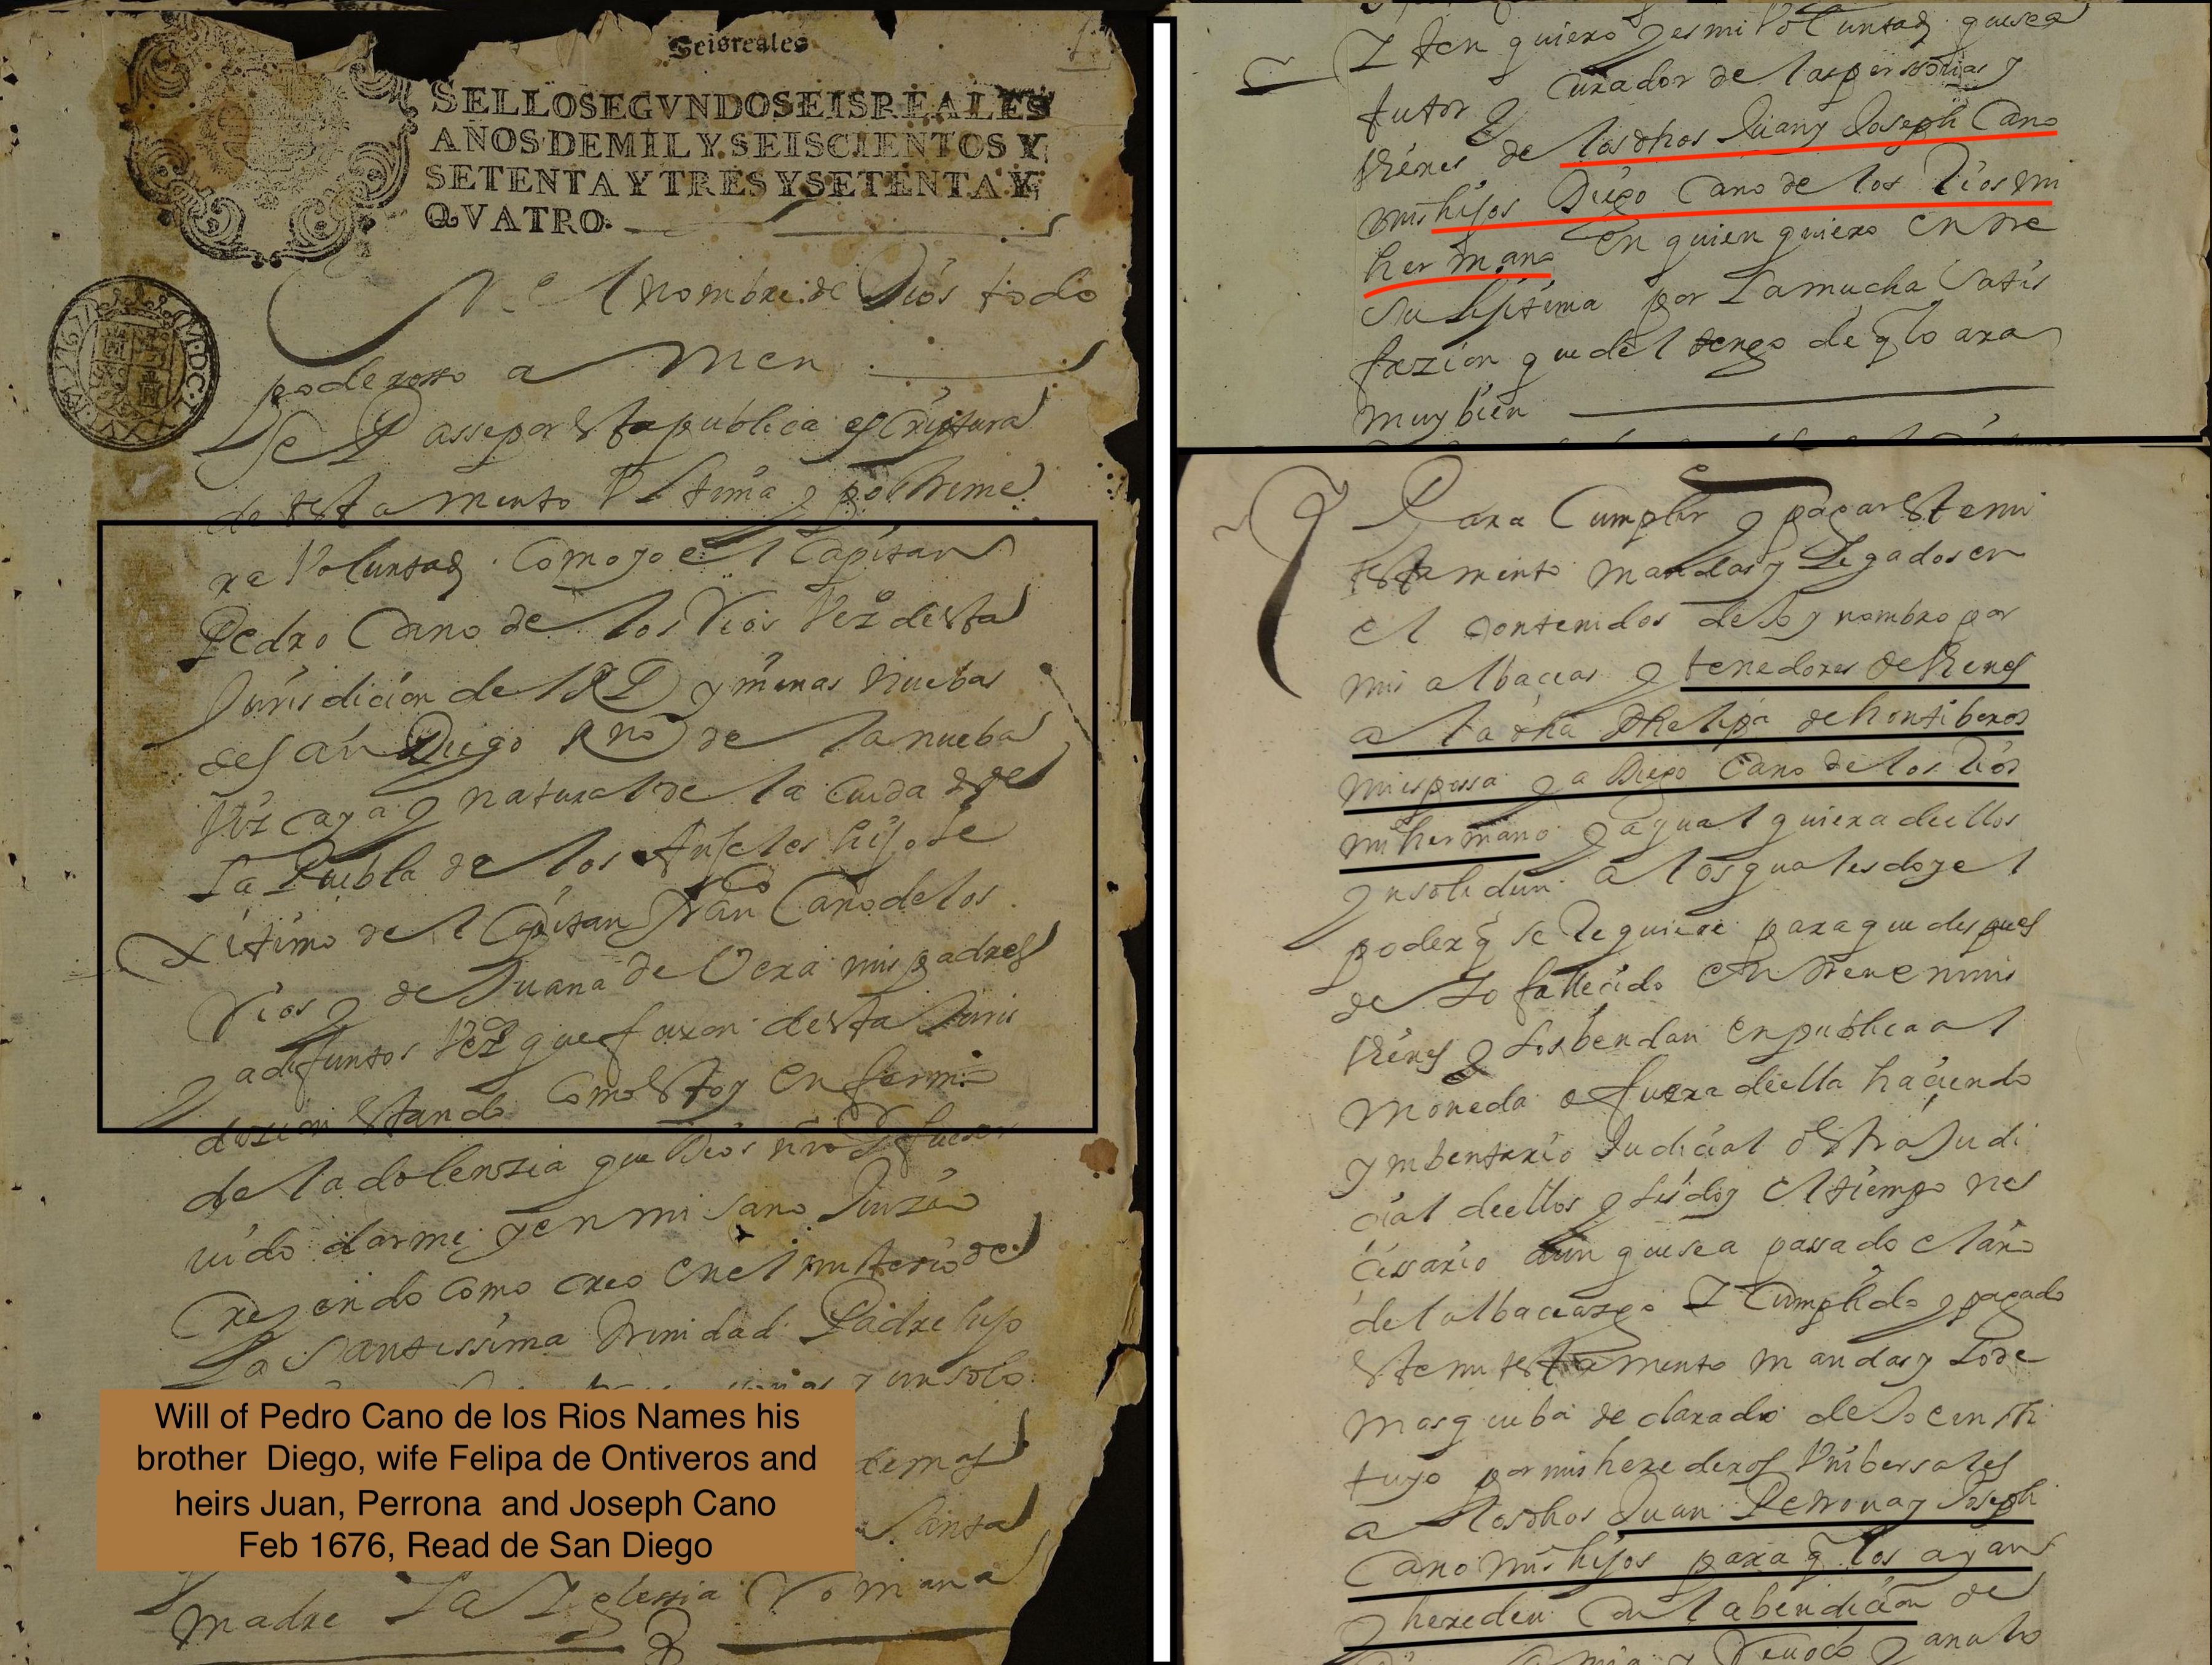 Seisreales
SELLO SEGVNDO SEIS REALES
AÑOS DE MIL Y SEISCIENTOS Y
SETENTA Y TRES Y SETENTA Y
QVATRO.
En el nombre de Dios todo
poderosso amen
Se Passe por Esta publica escriptura
de testamento Vltima y postrime
ra Voluntad Como yo el Capitan
Pedro Cano de los Rios Vez.o desta
Jurisdicion de el Rl y minas nuebas
de San Diego Rno de la nueba
Viscaya y natural de la Ciuda de
La Puebla de los Anjeles hijo le
xitimo de el Capitan Franco Cano de los
Rios y de Juana de Vera mis padres
ya difuntos Vez que fueron desta Juris
dizion estando Como Estoy enfermo
de la dolensia que Dios nro Sr fueser
uido darme y en mi sano Juizio
Creyendo como creo en el misterio de
La Santissima Trinidad Padre hijo
y un solo
Santa
madre La Iglessia Romana
Will of Pedro Cano de los Rios Names his
brother Diego, wife Felipa de Ontiveros and
heirs Juan, Perrona and Joseph Cano
Feb 1676, Read de San Diego
Iten quiero y es mi Voluntad que sea
tutor y Curador de las perssonas y
Vienes de los dhos Juan y Joseph Cano
mis hijos Diego Cano de los Rios mi
hermano en quien quiero entre
su lijitima por La mucha Satis
fazion que del tengo de q lo ara
muy bien
Para Cumplir y pagar Este mi
testamento mandas y Legados en
el contenidos dejo y nombro por
mis albaceas y tenedores de Vienes
a la dha Phelipa de hontiberos
mi espossa y a Diego Cano de los Rios
mi hermano y a qualquiera de ellos
ynsolidun a los quales doy el
poder q se Requiere para que despues
de Yo fallecido entren en mis
Vienes y los bendan en publica al
moneda o fuera de ella haciendo
ymbentario Judicial o Estra Judi
cial de ellos y les doy el tiempo nes
cessario aun que sea passado el año
del albaceasgo Y Cumplido y pagado
Este mi testamento mandas y Lo de
mas que ba declarado dejo e ynsti
tuyo por mis herederos Vnibersales
a los dhos Juan Petrona y Joseph
Cano mis hijos para q los ayan
y hereden con la bendicion de